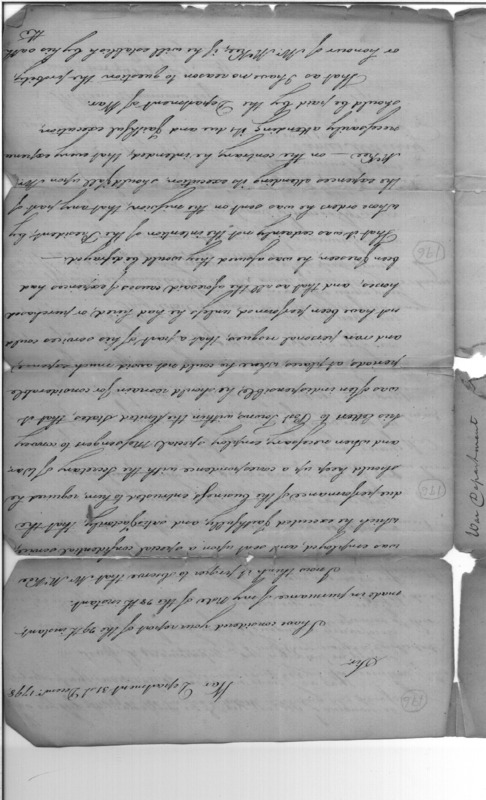 War Department 31st Decemr. 1798
Sir,
I have considered your report of the 29th instant,
made in pursuance of my Note of the 28th instant.
I now think it proper to observe that Mr. McKee
was employed, and sent upon a special confidential service,
which he executed faithfully, and satisfactorily, that the
due performance of the business entrusted to him required he
should keep up a correspondence with the Secretary of War,
and when necessary, employ special Messengers to convey
his letters to Post Towns, within the United States, that it
was often indispensible, he should remain for considerable
periods, at places where he could not avoid much expence,
and run personal risques, that a part of his services could
not have been performed, unless he had hired, or purchased
horses, and that as all the aforesaid causes of expences had
been foreseen he was assured they would be defrayed.—
That it was certainly not the intention of the President, by
whose orders he was sent on the mission, that any part of
the expences attending its execution should fall upon Mr.
McKee — on the contrary he intended, that every expence
necessarily attending its due and faithful execution,
should be paid by the Department of War.
That as I have no reason to question the probity,
or honor of Mr. McKee, if he will establish by his oath
the
196
196
196
War Department